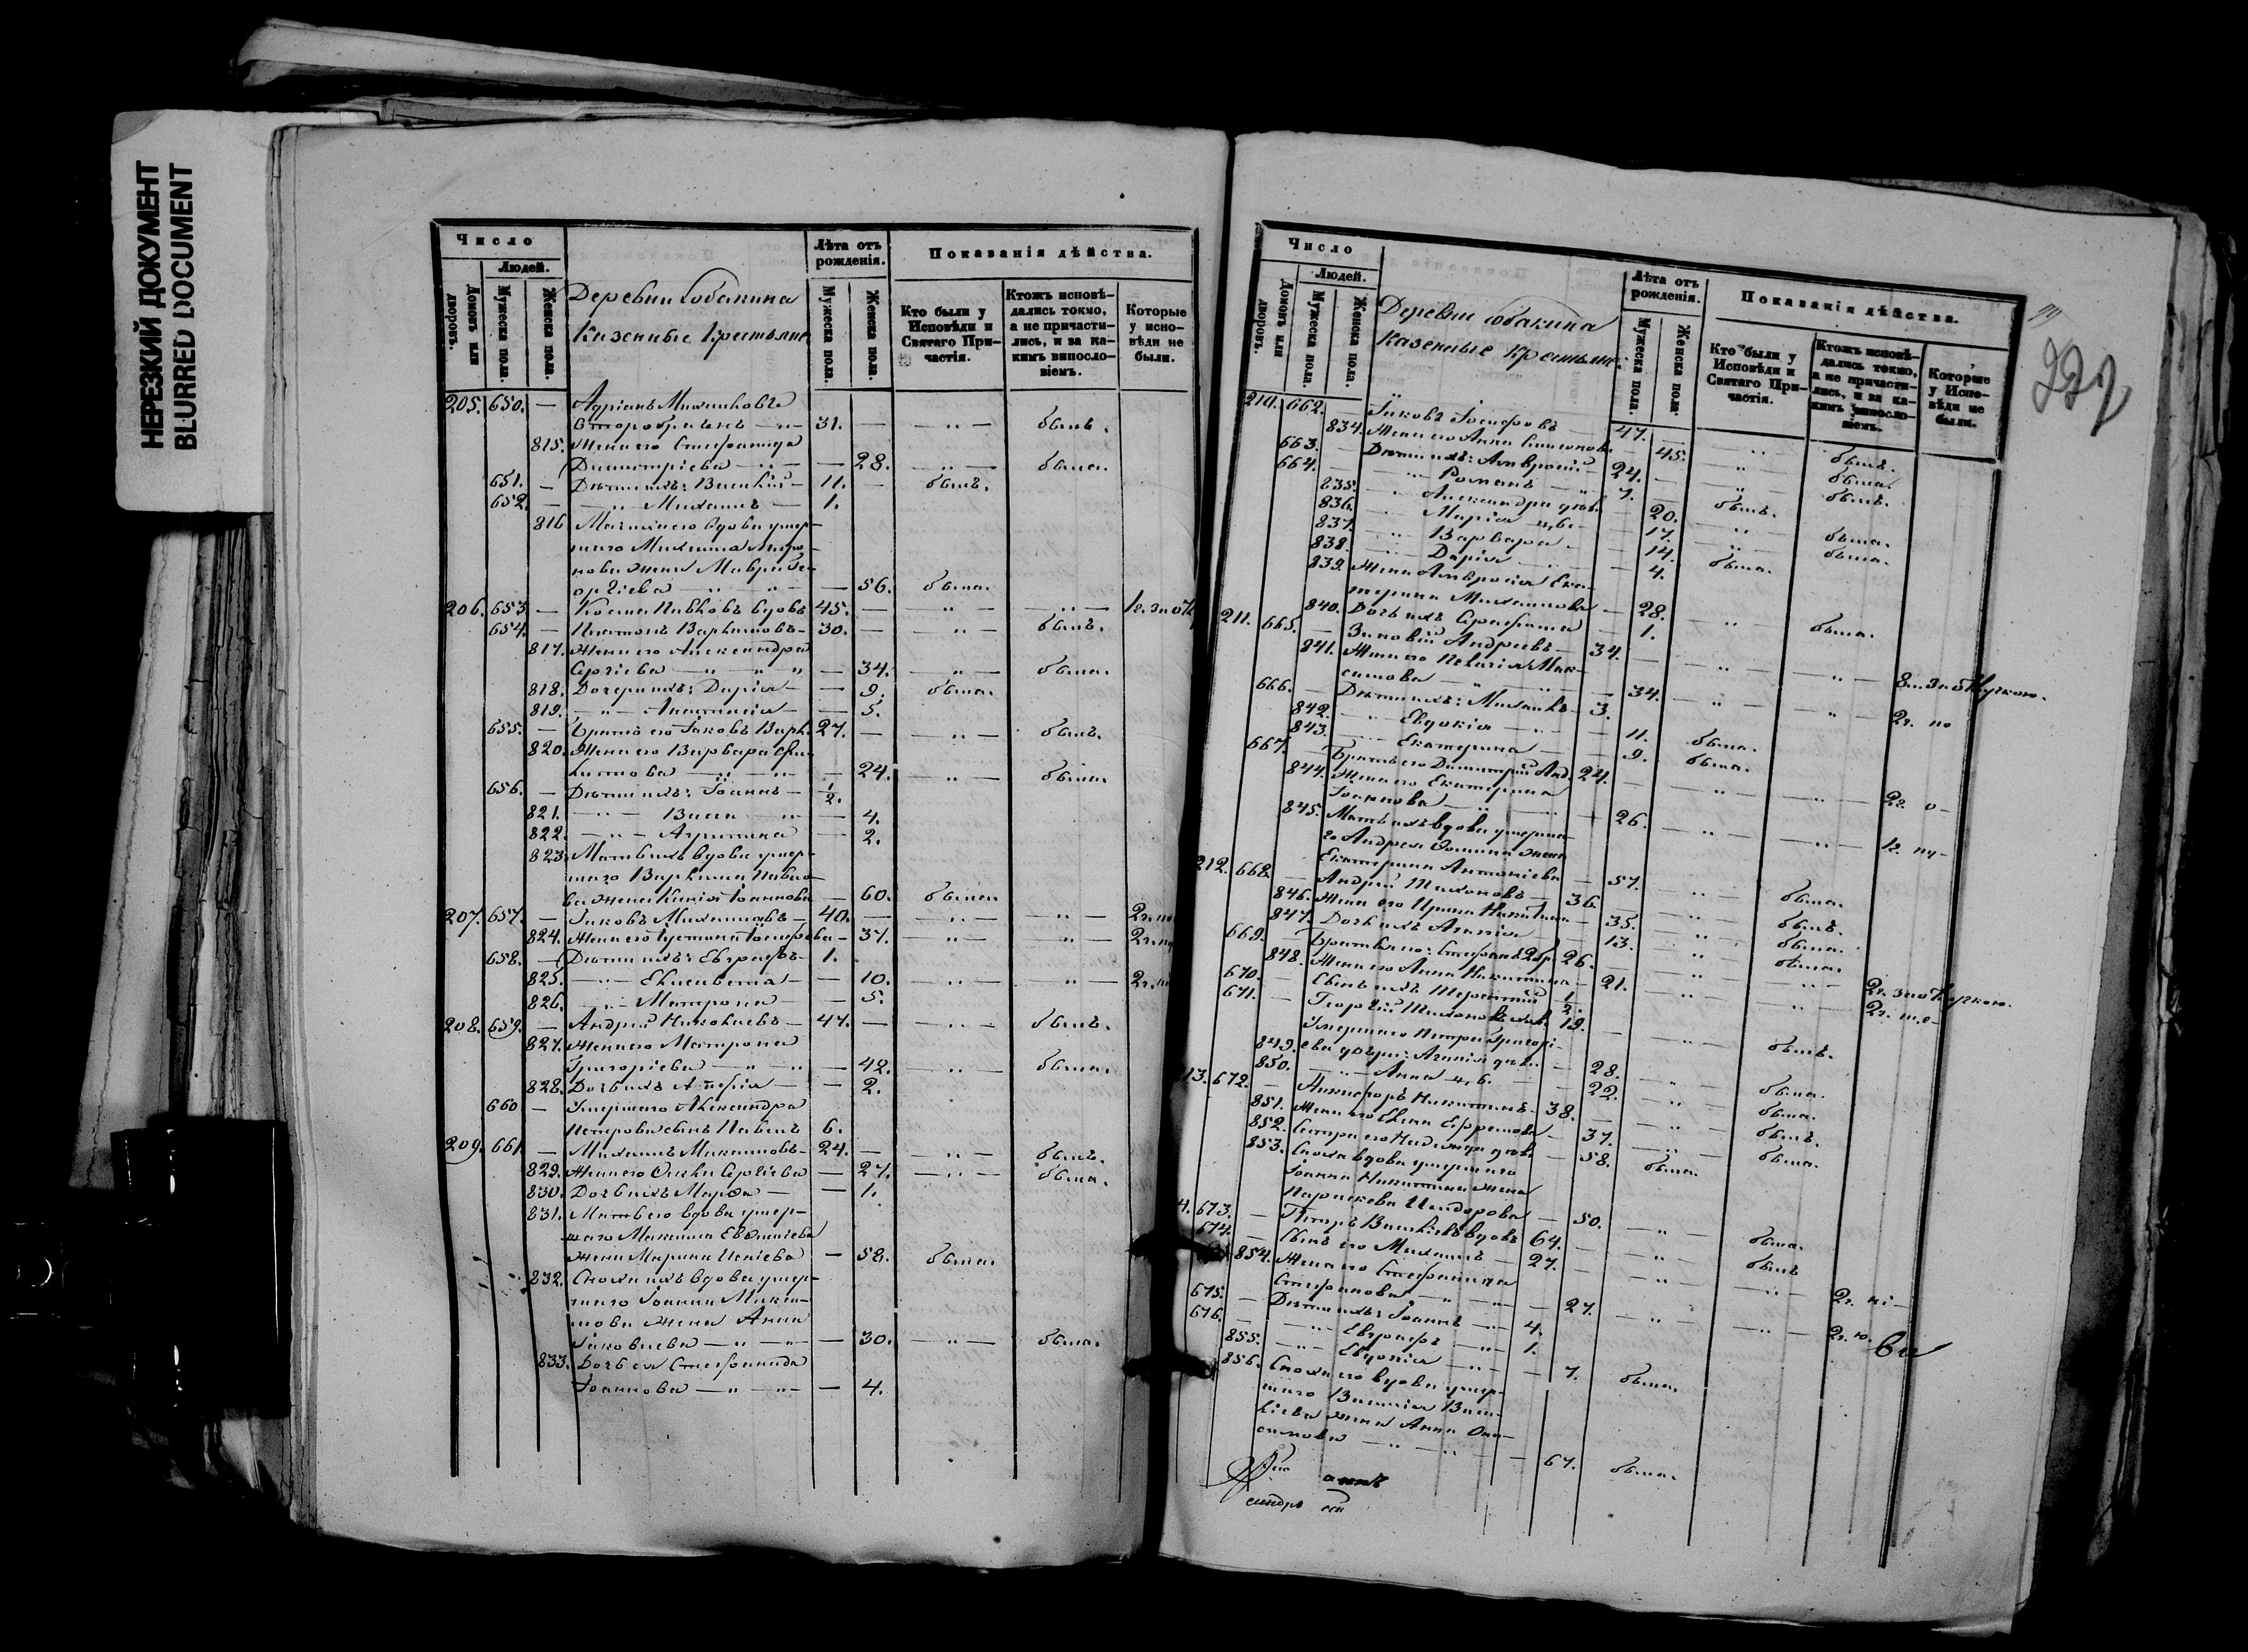 НЕРЕЗКИЙ ДОКУМЕНТ
BLURRED DOCUMENT
Число
Людей.
Домовъ или дворовъ.
Мужеска пола.
Женска пола.
Деревни Собакина
Казенные Крестьяне
Лѣта отъ рожденія.
Мужеска пола.
Женска пола.
Показанія дѣйства.
Кто были у Исповѣди и Святаго Причастія.
Ктожъ исповѣдались токмо, а не причастились, и за какимъ винословіемъ.
Которые у исповѣди не были.
205. 650. — Адріанъ Михаиловъ
31. — — „ — былъ.
815. Жена его Стефанида
Димитріева — „ — — 28. — „ — была.
651. — Дѣти ихъ: Василій — 11. — былъ.
652. — — „ — Михаилъ — 1.
816 Мать его вдова умер-
шаго Михаила
нова жена Мавра Ге-
оргіева — „ — „ — — 56. была.
206. 653. — Косма Павловъ вдовъ 45. — — „ — — „ —
654. — Платонъ Варламовъ — 30. — — „ — былъ.
817. Жена его Александра
Сергіева — „ — „ — „ — 34. — „ — была.
818. Дочери ихъ: Дарія — — 9. была.
819. — „ — Анастасія — — 5.
655. — Братъ его Іаковъ Варл. 27. — — „ — былъ.
820. Жена его Варвара
— „ — „ — — 24. — „ — была.
656. — Дѣти ихъ: Іоаннъ — 1/2.
821. — „ — Васса — „ — — 4.
822. — „ — Агрипина — 2.
823. Мать ихъ вдова умер-
шаго Варлама Павло-
ва жена Іоаннова — 60. была.
207. 657. — Іаковъ Михаиловъ — 40. — — „ — — „ — 2г. по
824. Жена его Іустина Іосифова — 37. — „ — — „ — 2г.
658. — Дѣти ихъ: Евграфъ — 1.
825. — „ — Елисавета — — 10. — „ — — „ — 2г.
826. — „ — Матрона — — 5.
208. 659. — Андрей Николаевъ — 47. — — „ — былъ.
827. Жена его Матрона
Григоріева — „ — „ — — 42. — „ — была.
828. Дочь ихъ — — 2.
660 — Умершаго Александра
Петрова сынъ Павелъ 6.
209. 661. — Михаилъ Максимовъ — 24. — — „ — былъ.
829. Жена его Сергіева — 27. — „ — была.
830. Дочь ихъ Марѳа — — 1.
831. Мать его вдова умер-
шаго Максима Евѳиміева
жена Марина — 58. была.
832. Сноха ихъ вдова умер-
шаго Іоанна Макси-
мова жена Анна
Іаковлева — „ — „ — — 30. — „ — была.
833. Дочь ея Стефанида
Іоаннова — „ — „ — — 4.
Число
Людей.
Домовъ или дворовъ.
Мужеска пола.
Женска пола.
Деревни Собакина
Казенные Крестьяне
Лѣта отъ рожденія.
Мужеска пола.
Женска пола.
Показанія дѣйства.
Кто были у Исповѣди и Святаго Причастія.
Ктожъ исповѣдались токмо, а не причастились, и за какимъ винословіемъ.
Которые у Исповѣди не были.
210. 662. — Іаковъ Іосифовъ — 47. — — „ — былъ.
834. Жена его Анна — 45. — „ — была.
663. — Дѣти ихъ: Амвросій — 24. — — „ — былъ.
664. — — „ — Романъ — „ 7. — былъ.
835. — „ — Александра дѣв. — 20. — „ — была.
836. — „ — Марія — 17. — „ — была.
837. — „ — Варвара — — 14. была.
838. — „ — Дарія — — 4.
839. Жена Амвросія Ека-
терина Михаилова — 28. — „ — была.
840. Дочь ихъ — 1.
211. 665. — Зиновій Андреевъ — 34. — — „ — — „ —
841. Жена его Пелагія Мак-
симова — „ — „ — — 34. — „ — — „ — 2г. по
666. — Дѣти ихъ: Михаилъ — 3.
842. — „ — Евдокія — „ — — 11. была.
843. — „ — Екатерина — — 9. была.
667. — Братъ его Димитрій Анд. 24. — — „ — — „ — 2г.
844. Жена его Екатерина
Іоаннова — „ — „ — — 26. — „ — — „ — 1г.
845. Мать ихъ вдова умерша-
го Андрея Ѳомина жена
Екатерина Антоніева — 57. — „ — была.
212. 668. — Андрей Тихоновъ — 36. — — „ — былъ.
846. Жена его Ирина Никитина — 35. — „ — была.
847. Дочь ихъ Агапія — 13. — „ — была.
669. — Братъ его: Стефанъ 26. — — „ — — „ —
848. Жена его Анна Никитина — 21. — „ — — „ — 2г.
670. — Сынъ ихъ Терентій 1/2.
671. — Георгій Тихоновъ 19. — — „ — былъ.
Умершаго Петра Григорі-
849. ева дочери: Агапія дѣв. — 28. — „ — была.
850. — „ — Анна — 22. — „ — была.
13. 672. — Никифоръ Никитинъ — 38. — — „ — былъ.
851. Жена его Елена Ефремова — 37. — „ — была.
852. Сестра его Надежда дѣв. — 58. была.
853. Сноха вдова умершаго
Іоанна Никитина жена
Параскева Исидорова — 50. — „ — была.
4. 673. — Петръ Васильевъ вдовъ 64. — — „ — былъ
674. — Сынъ его Михаилъ — 27. — — „ — — „ — 2г.
854. Жена его Стефанида
Стефанова — „ — „ — — 27. — „ — — „ — 2г.
675. — Дѣти ихъ: Іоаннъ — „ 4.
676. — — „ — Евграфъ — „ 1.
855. — „ — Евдокія — „ — — 7. была.
856. Сноха его вдова умер-
шаго Василія Васи-
льева жена Анна Они-
симова — „ — „ — — 67. была.